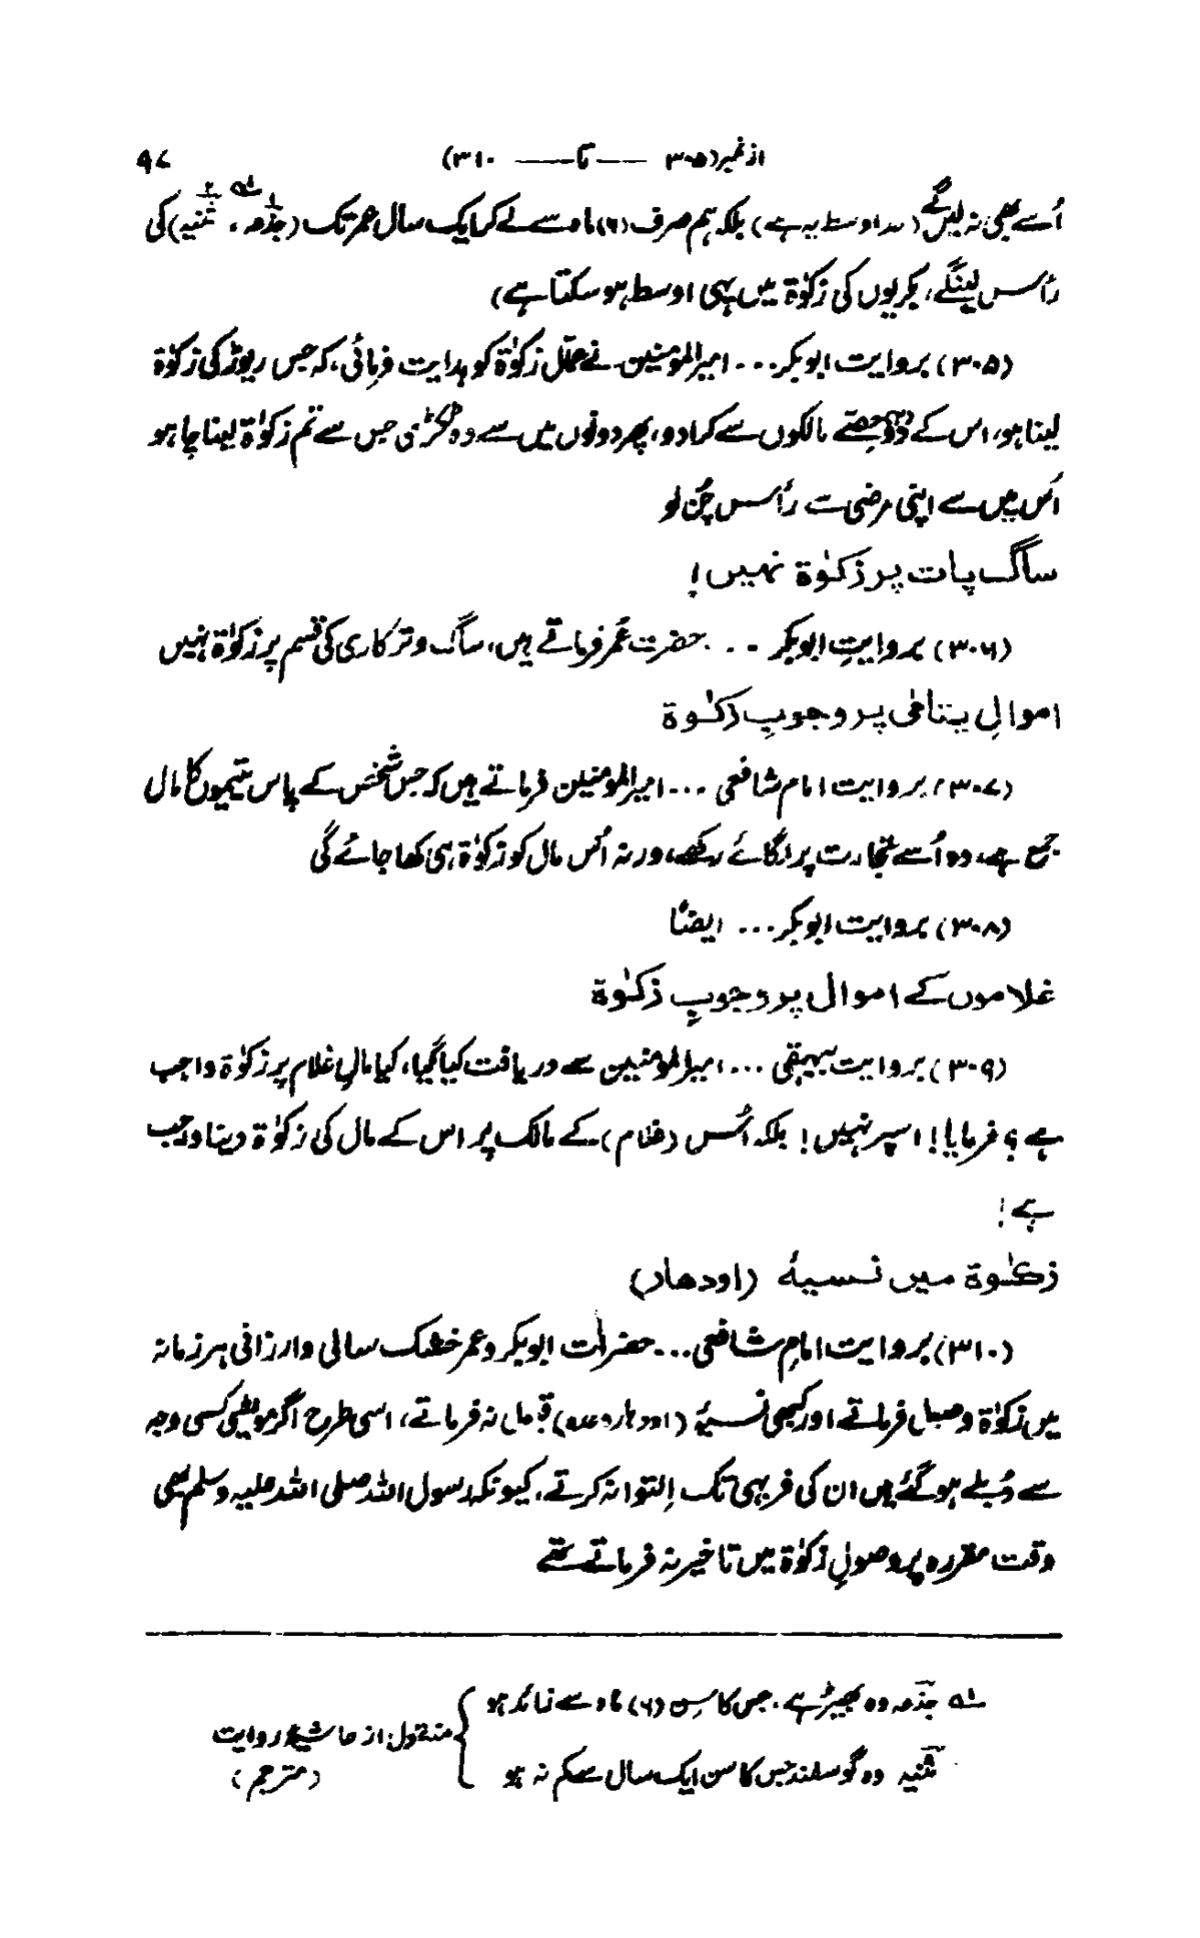 از نمبر (۳۰۵ —— تا —— ۳۱۰) ۹۷
اُسے بھی نہ لیں گے (حد اوسط یہ ہے) بلکہ ہم صرف (۶) ماہ سے لے کر ایک سال عمر تک (جذعہ ۱؎، ثنیہ ۲؎) کی
رأس لینگے، بکریوں کی زکوٰۃ میں یہی اوسط ہو سکتا ہے)
(۳۰۵) بروایت ابوبکر... امیرالمؤمنین نے عمّال زکوٰۃ کو ہدایت فرمائی، کہ جس ریوڑ کی زکوٰۃ
لینا ہو، اس کے دو حصّے مالکوں سے کرادو، پھر دونوں میں سے وہ ٹکڑی جس سے تم زکوٰۃ لینا چاہو
اُس میں سے اپنی مرضی سے رأس چُن لو
ساگ پات پر زکوٰۃ نہیں!
(۳۰۶) بروایتِ ابوبکر ... حضرت عُمر فرماتے ہیں، ساگ و ترکاری کی قسم پر زکوٰۃ نہیں
اموالِ یتامٰی پر وجوبِ زکوٰۃ
(۳۰۷) بروایت امام شافعی ... امیرالمومنین فرماتے ہیں کہ جس شخص کے پاس یتیموں کا مال
جمع ہے، وہ اُسے تجارت پر لگائے رکھے، ورنہ اُس مال کو زکوٰۃ ہی کھا جائے گی
(۳۰۸) بروایت ابوبکر... ایضًا
غلاموں کے اموال پر وجوبِ زکوٰۃ
(۳۰۹) بروایت بیہقی ... امیرالمؤمنین سے دریافت کیا گیا، کیا مالِ غلام پر زکوٰۃ واجب
ہے؟ فرمایا! اسپر نہیں! بلکہ اُس (غلام) کے مالک پر اس کے مال کی زکوٰۃ دینا واجب
ہے!
زکوٰۃ میں نسیۂ (اودھار)
(۳۱۰) بروایت امامِ شافعی... حضرات ابوبکر و عمر خشک سالی و ارزانی ہر زمانہ
میں زکوٰۃ وصول فرماتے اور کبھی نسیۂ (اودھار وعدہ) قبول نہ فرماتے، اسی طرح اگر مویشی کسی وجہ
سے دُبلے ہو گئے ہیں ان کی فربہی تک اِلتوا نہ کرتے، کیونکہ رسول اللہ صلی اللہ علیہ وسلم بھی
وقت مقررہ پر وصولِ زکوٰۃ میں تاخیر نہ فرماتے تھے
۱؎ جذعہ وہ بھیڑ ہے، جس کا سِن (۶) ماہ سے زائد ہو
ثنیہ وہ گوسفند جس کا سن ایک سال سے کم نہ ہو
منقول از حاشیۂ روایت
(مترجم)